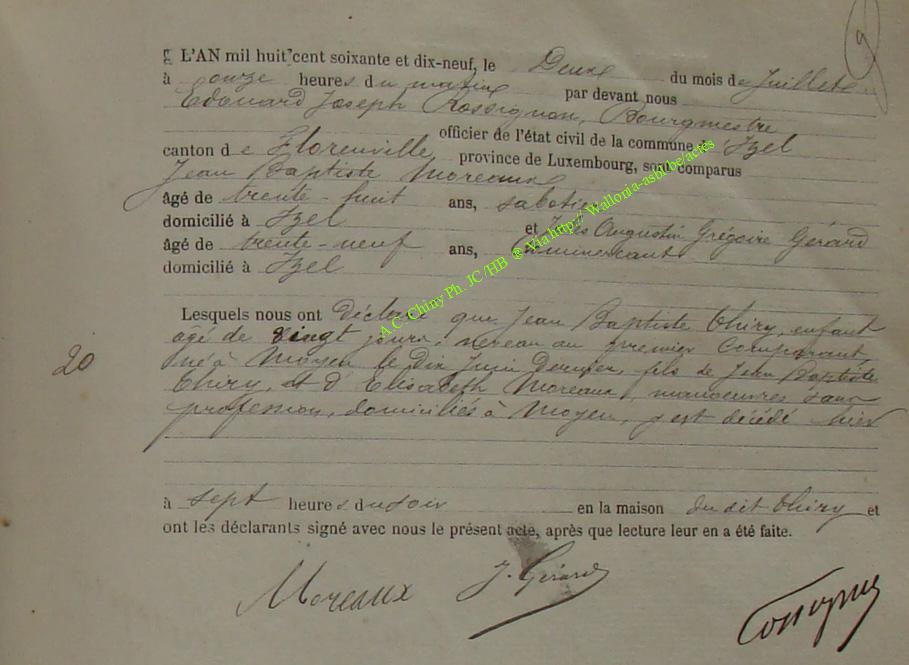 9
L'AN mil huit cent soixante et dix-neuf, le Deux du mois de Juillet
à onze heures du matin par devant nous
Edouard Joseph Rossignon, Bourgmestre
officier de l'état civil de la commune d'Izel
canton de Florenville, province de Luxembourg, sont comparus
Jean Baptiste Moreaux
âgé de trente-huit ans, sabotier
domicilié à Izel et Jules Augustin Grégoire Gérard
âgé de trente-neuf ans, Commerçant
domicilié à Izel
Lesquels nous ont Déclaré que Jean Baptiste Thiry, enfant
âgé de vingt jours, neveau au premier Comparant,
20
né à Moyen le Dix Juin Dernier, fils de Jean Baptiste
Thiry, et d'Elisabeth Moreaux, manoeuvres sans
profession, domiciliés à Moyen, y est décédé hier
à sept heures du soir en la maison du dit Thiry et
ont les déclarants signé avec nous le présent acte, après que lecture leur en a été faite.
Moreaux J. Gérard
A C Chiny Ph. JC/HB ® Via http:// Wallonia-asbl.be/actes